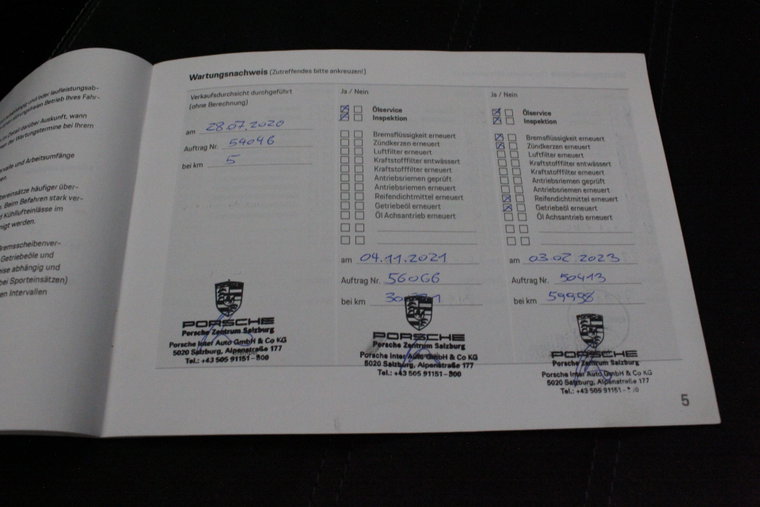 Wartungsnachweis (Zutreffendes bitte ankreuzen!)
Verkaufsdurchsicht durchgeführt
(ohne Berechnung)
am 28.07.2020
Auftrag Nr. 54046
bei km 5
PORSCHE
Porsche Zentrum Salzburg
Porsche Inter Auto GmbH & Co KG
5020 Salzburg, Alpenstraße 177
Tel.: +43 505 91151 - 500
Ja / Nein
Ölservice
Inspektion
Bremsflüssigkeit erneuert
Zündkerzen erneuert
Luftfilter erneuert
Kraftstofffilter entwässert
Kraftstofffilter erneuert
Antriebsriemen geprüft
Antriebsriemen erneuert
Reifendichtmittel erneuert
Getriebeöl erneuert
Öl Achsantrieb erneuert
am 04.11.2021
Auftrag Nr. 56066
bei km
PORSCHE
Porsche Zentrum Salzburg
Porsche Inter Auto GmbH & Co KG
5020 Salzburg, Alpenstraße 177
Tel.: +43 505 91151 - 500
Ja / Nein
Ölservice
Inspektion
Bremsflüssigkeit erneuert
Zündkerzen erneuert
Luftfilter erneuert
Kraftstofffilter entwässert
Kraftstofffilter erneuert
Antriebsriemen geprüft
Antriebsriemen erneuert
Reifendichtmittel erneuert
Getriebeöl erneuert
Öl Achsantrieb erneuert
am 03.02.2023
Auftrag Nr. 50413
bei km 59998
PORSCHE
Porsche Zentrum Salzburg
Porsche Inter Auto GmbH & Co KG
5020 Salzburg, Alpenstraße 177
Tel.: +43 505 91151 -
5